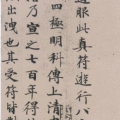 服此真符遊行八
四極明科傳上清
乃宣之七百年得
出洩也其受符